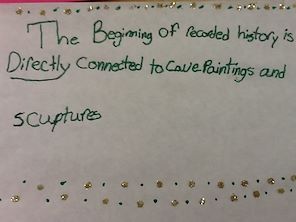 The Beginning of recorded history is
Directly Connected to Cave Paintings and
scuptures